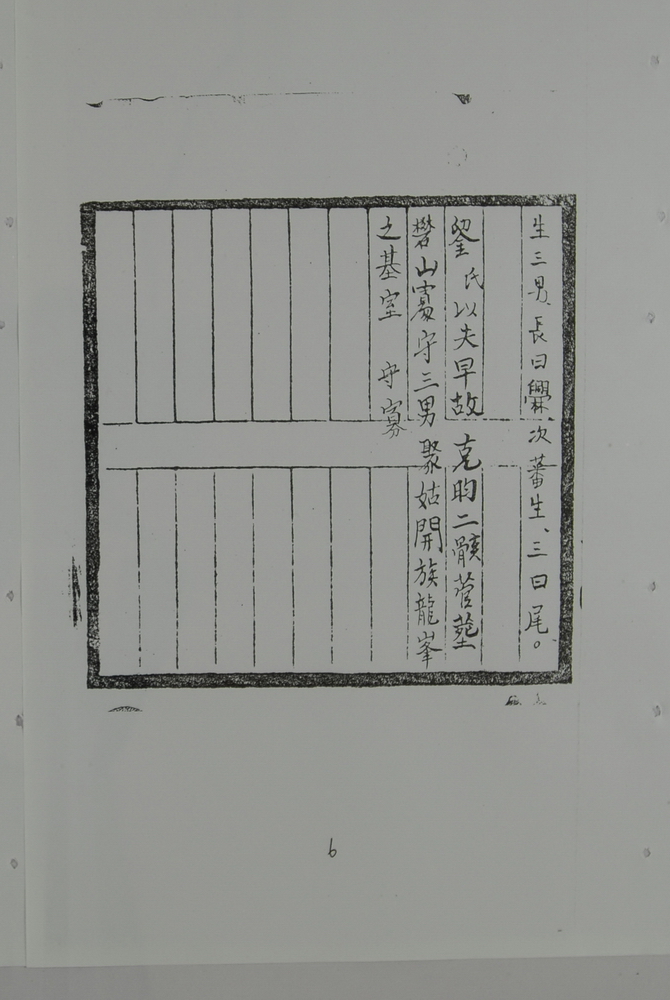 生三男、長曰爨次蕃生、三曰尾。
劉氏以夫早故 克昀二骸營塟
礬山寡守三男聚姑開族龍峯
之基室 守寡
6